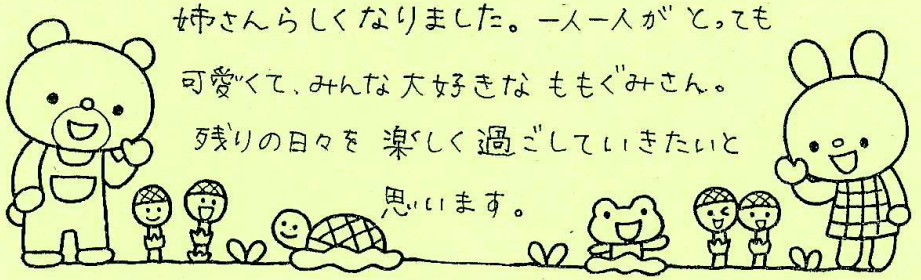 姉さんらしくなりました。一人一人がとっても
可愛くて、みんな大好きなももぐみさん。
残りの日々を楽しく過ごしていきたいと
思います。